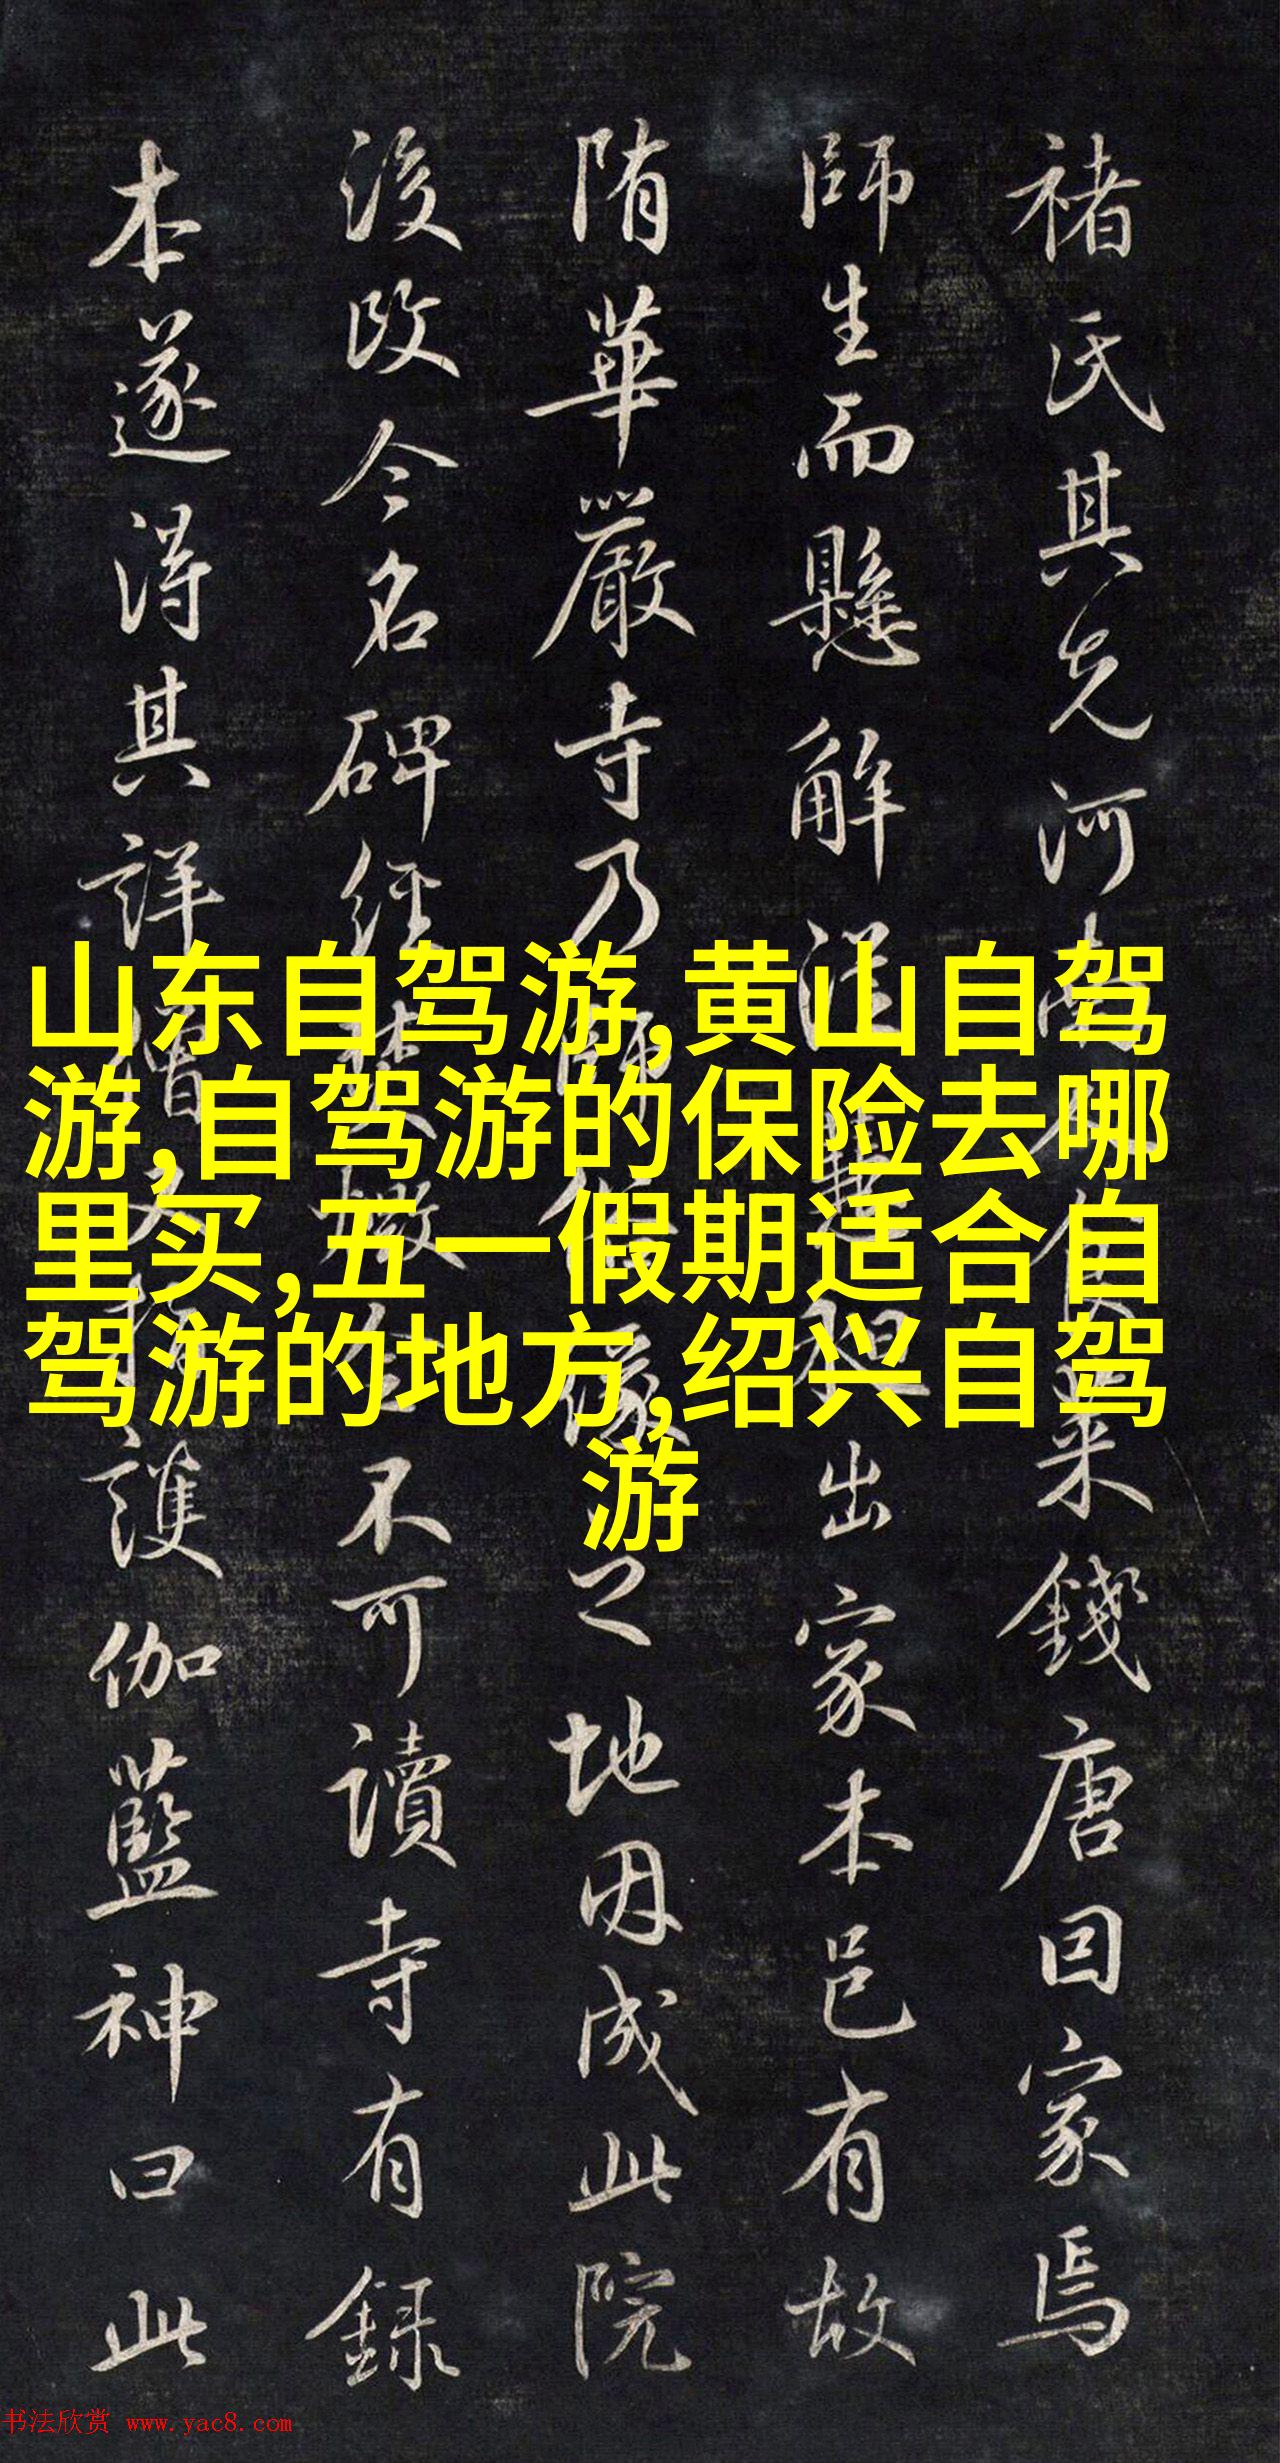 褚氏其先河南人食菜錢唐因家焉
師生而懸解從出家本邑有故
隋華嚴寺乃師化緣之地因成此院
後改今名碑經不可讀寺有録
本遂得其詳護伽藍神曰此
山东自驾游,黄山自驾
游,自驾游的保险去哪
里买,五一假期适合自
驾游的地方,绍兴自驾
游
书法欣赏 www.yac8.com